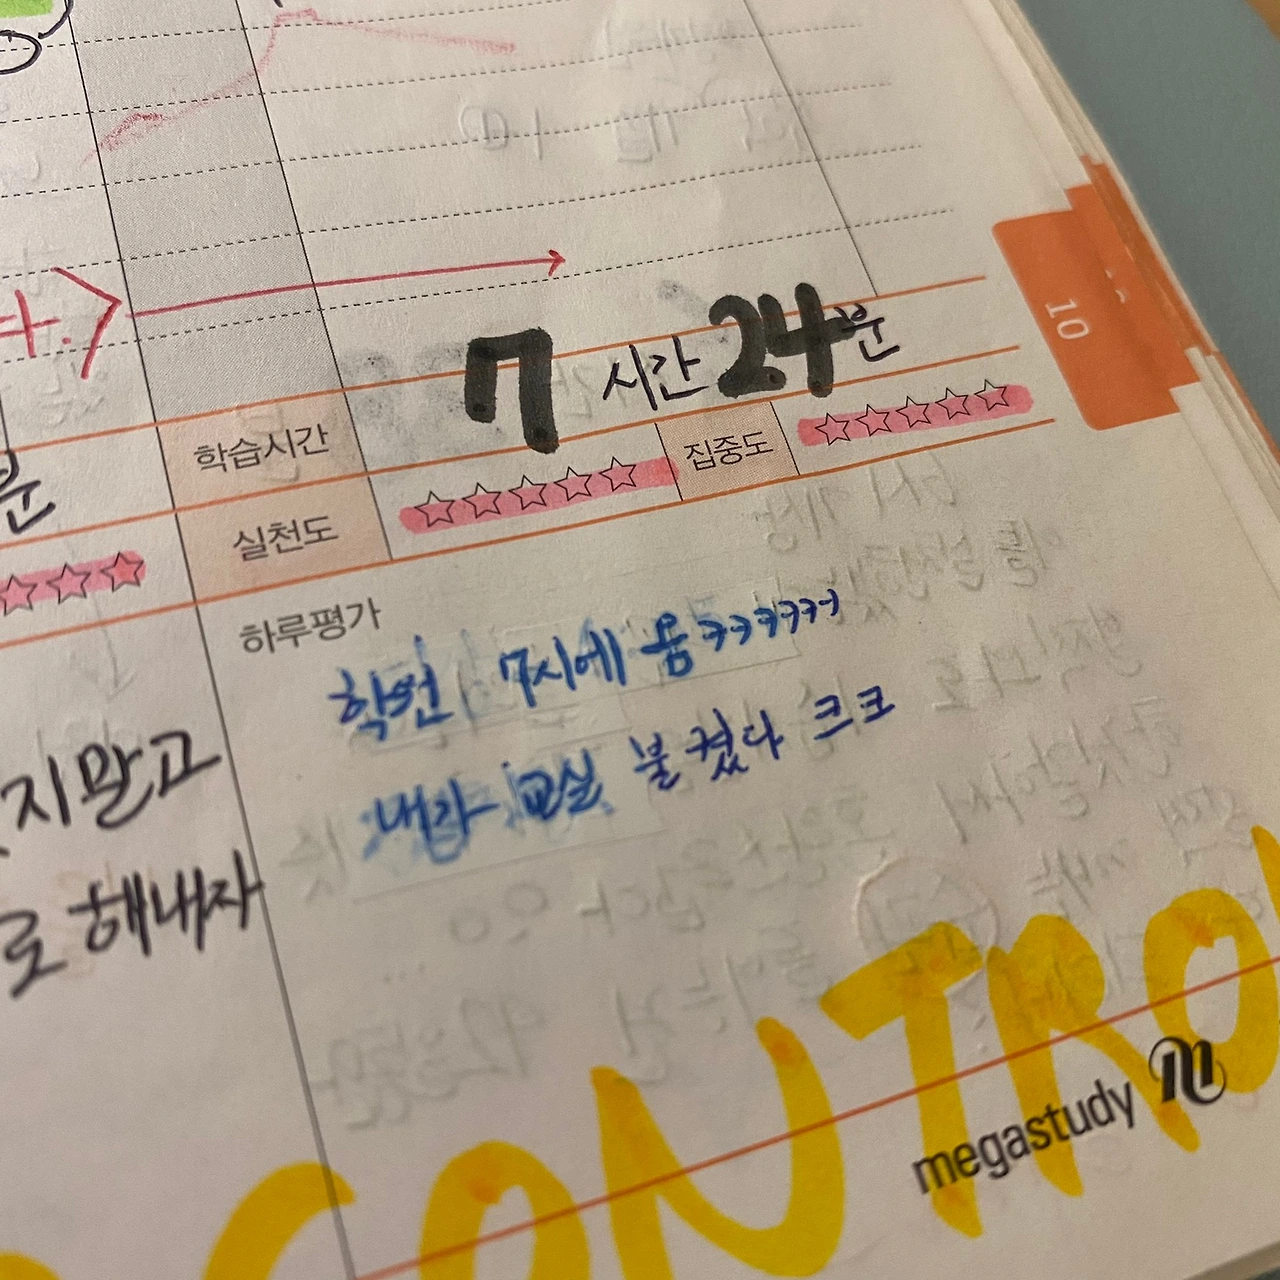 10
다.>
7 시간 24분
학습시간
분
실천도 ☆☆☆☆☆ 집중도 ☆☆☆☆☆
하루평가
학원 7시에 옴 ㅋㅋㅋㅋㅋ
내가 교실 불 켰다 ㅋㅋ
지말고
로 해내자
CONTRO
megastudy